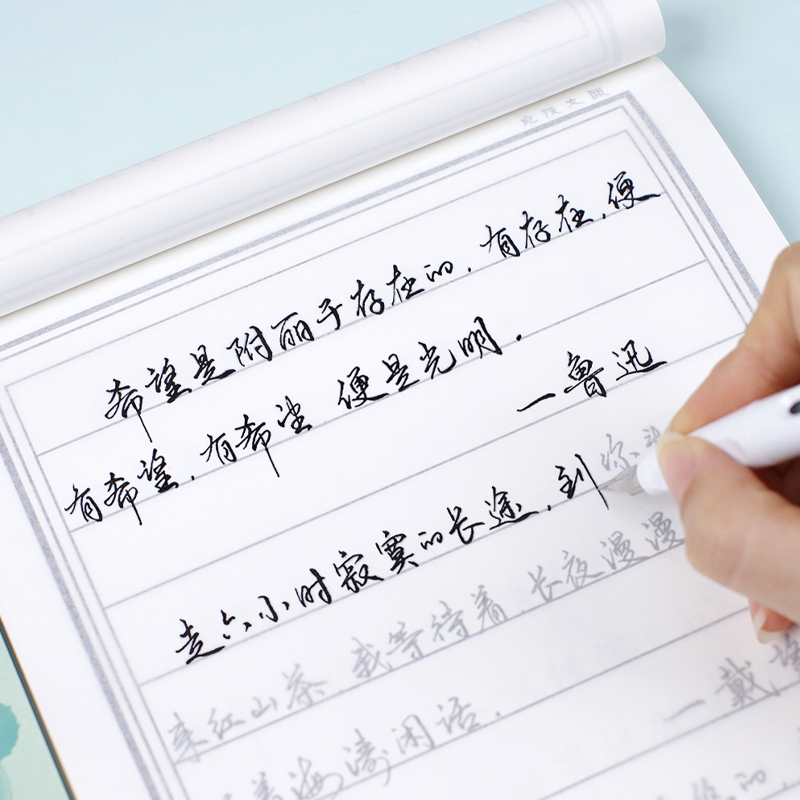 希望是附丽于存在的,有存在,便
有希望,有希望 便是光明.
一鲁迅
走六小时寂寞的长途,到你
来红山茶.我等待着,长夜漫漫
一戴
着海涛闲话.